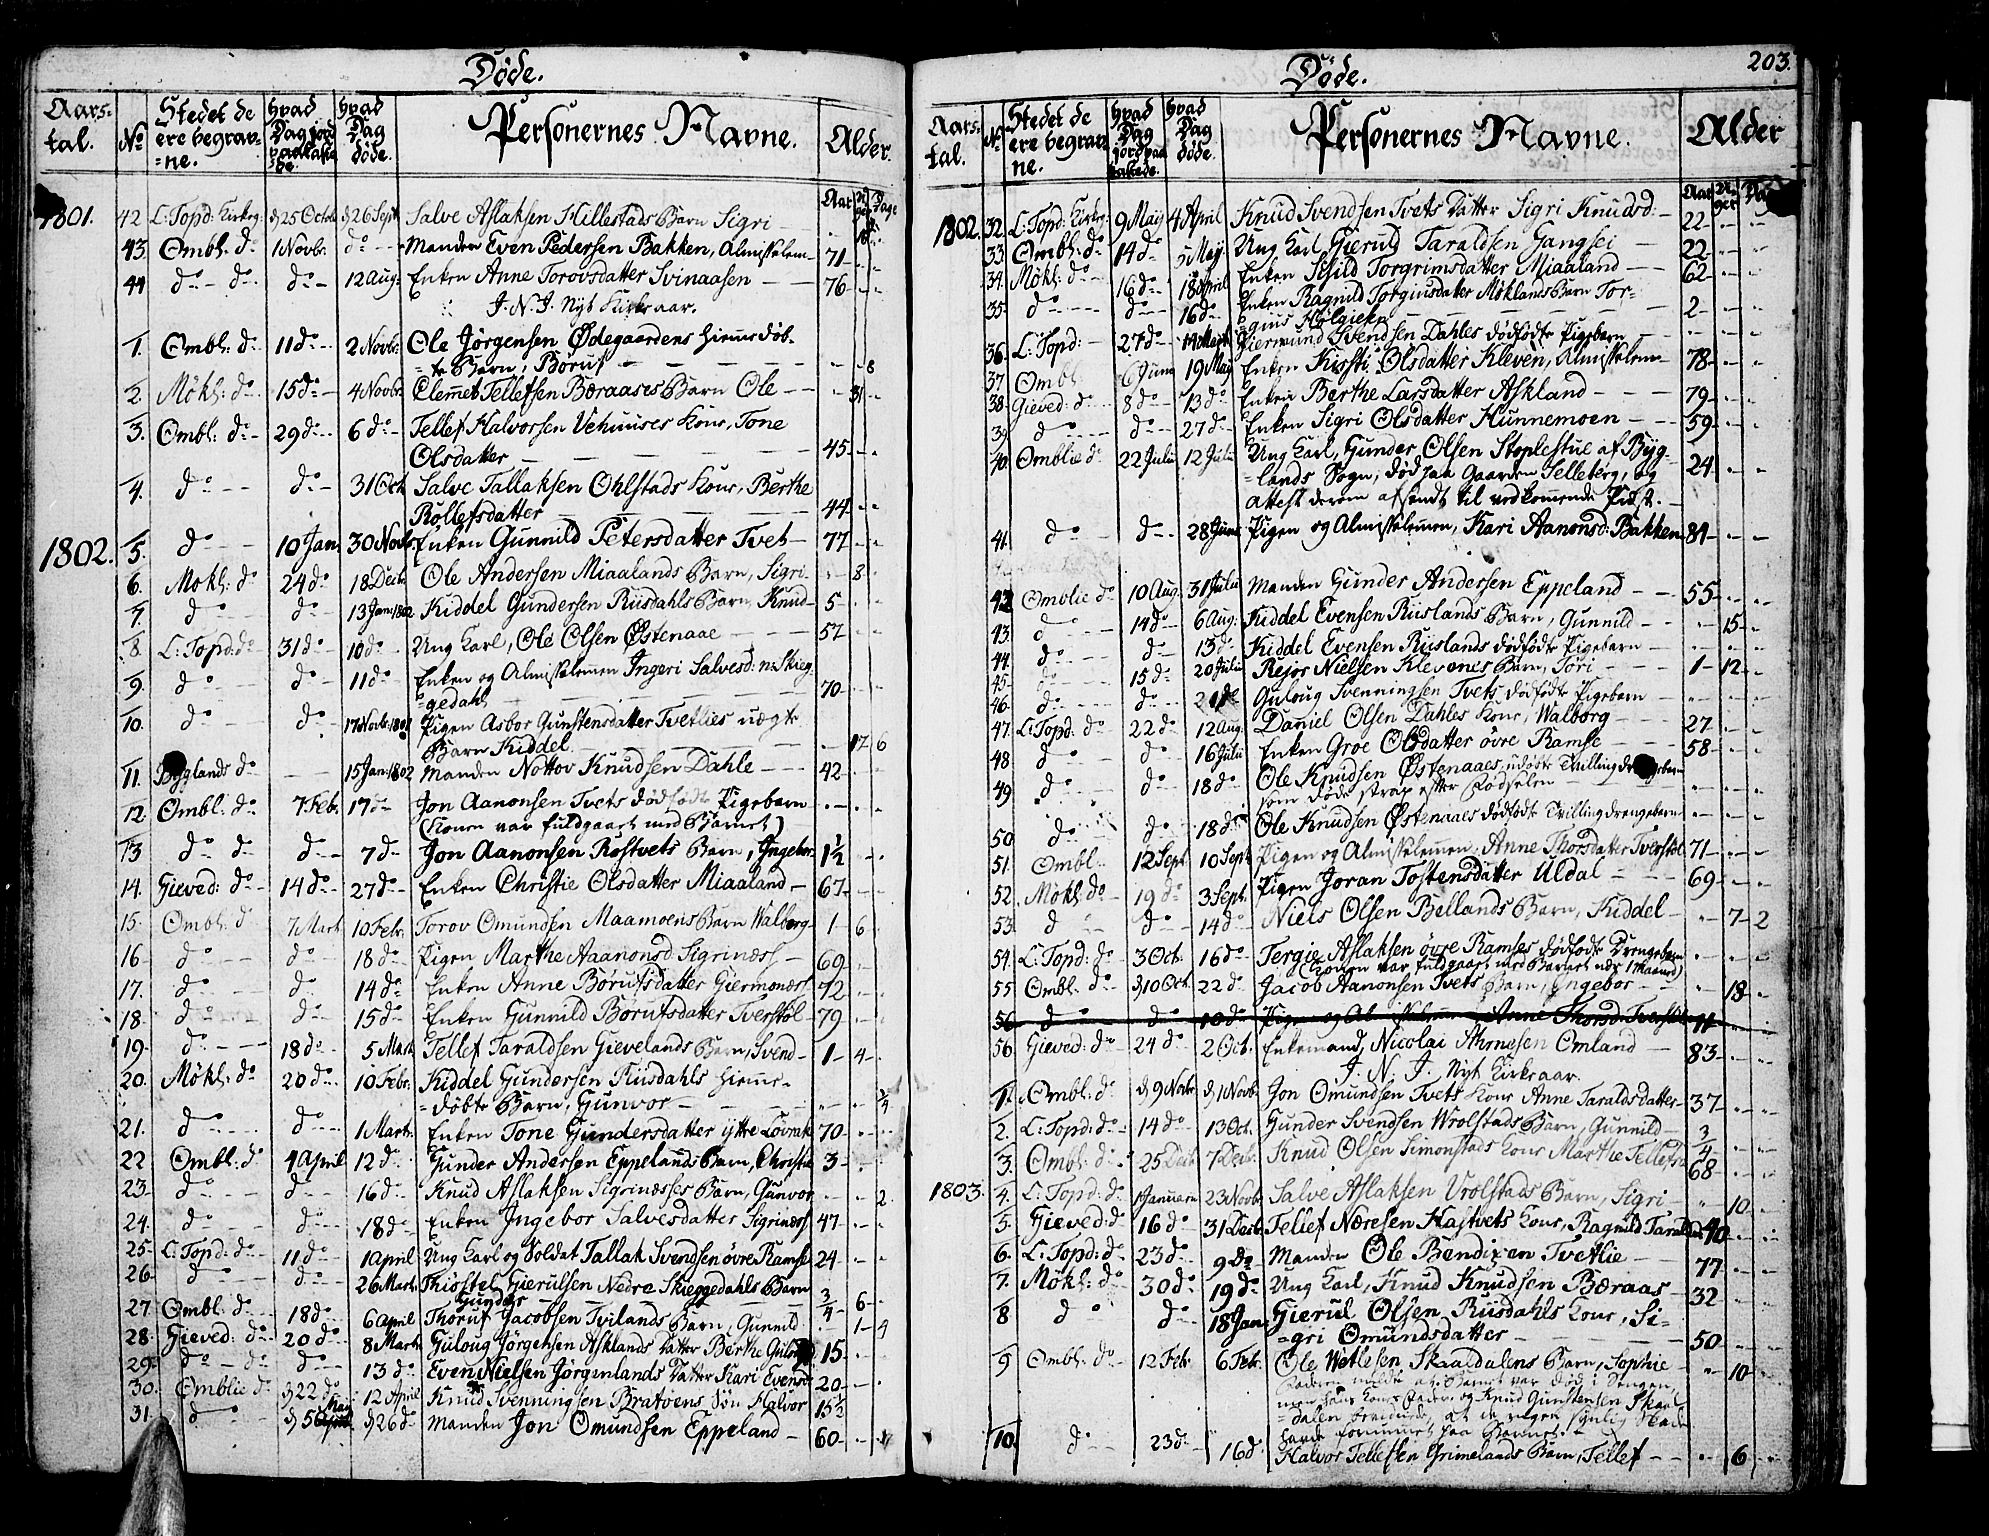 Døde.
Aars-
tal.
No
Stedet de
ere begrav-
=ne.
hvad
Dag jord
paakaste
de.
hvad
Dag
døde.
Personernes Navne.
Alder.
Aar Uger Dage
1801. 42 L: Topd: Kirkeg: d 25 Octob d 26 Sept Salve Aslaksen Hillestads Barn Sigri
43. Ombl: do 1 Novbr. do Manden Even Pedersen Bakken, Almisselem 71
44 do do do 12 Aug: Enken Anne Torovsdatter Svinaasen 76
J. N. J. Nyt Kirkeaar.
1. Ombl: do 11 do 2 Novbr. Ole Jørgensen Ødegaardens hiemmedøb-
=te Barn, Børuf 8
2. Møkl: do 15 do 4 Novbr. Clemet Tellefsen Bæraases Barn Ole 31
3. Ombl: do 29 do 6 do Tellef Halvorsen Vehuuses Kone, Tone
Olsdatter 45
4. do do 31 Oct Salve Tallaksen Ohlstads Kone, Berthe
Rollefsdatter 44
1802. 5. do 10 Jan. 30 Novbr. Enken Gunnild Petersdatter Tvet 77
6. Mokl: do 24 do 18 Decb. Ole Andersen Miaalands Barn, Sigri 8
7. do do 13 Jan: 1802 Kiddel Gundersen Riisdahls Barn, Knud 5
8. L: Topd: do 31 do 10 do Ung Karl, Ole Olsen Østenaae 57
9. do do 11 do Enken og Almisselemmen Ingeri Salvesd: n: Skieg
=gedahl 70
10. do do 17 Novbr. 1801 Pigen Asbor Gunstensdatter Tvetlies uægte
Barn Kiddel 17 6
11. Byglands do 15 Jan: 1802 Manden Nottov Knudsen Dahle 42
12. Ombl: do 7 Feb. 17 do Jon Aanonsen Tvets dødfødte Pigebarn
(Konen var fuldgaaet med Barnet)
13 do do do 7 do Jon Aanonsen Rostvets Barn, Ingebor 1 1/2
14. Gieved: do 14 do 27 do Enken Christie Olsdatter Miaaland 67
15. Ombl: do 7 Mart 10 Febr. Torov Omundsen Maamoens Barn Walborg 1 6
16 do do 18 do Pigen Marthe Aaanonsd Sigrinæss 69
17. do do 14 do Enken Anne Børufsdatter Giermonæss 72
18 do 15 do Enken Gunnild Børufsdatter Tverstøl 79
19. do 18 do 5 Mart. Tellef Taraldsen Gievelands Barn, Svend 1 4
20. Møkl: do 20 do 10 Febr. Kiddel Gundersen Riisdahls hieme-
=døbte Barn, Gunvor 1/4
21. do do 1 Mart. Enken Tone Gundersdatter ytte Løvrak 70
22 Ombl: do 4 April 12 do Gunder Andersen Eppelands Barn, Christi 3
23. do do 16 do Knud Aslaksen Sigrinæsses Barn, Gunvor 2
24. do do 18 do Enken Ingebor Salvesdatter Sigrinæss 47
25 L: Topd: do 11 do 1 April Ung Karl og Soldat Tallak Svendsen øvre Ramse 24
26 do do 26 Mart. Thiostel Gierulsen Nedre Skieggedahls Barn
Gunder 3/4
27 Ombl: do 18 do 6 April Thoruf Jacobsen Tvilands Barn, Gunnild 6
28 Gieved: do 20 do 8 Mart. Guloug Jørgensen Asklands Datter Berthe 15
29 do do do 13 do Even Nielsen Jørgenlands Datter Kari Evensd 20
30. Omblie do d 22 do 12 April Knud Svenningsen Bratvens Søn Halvor 15 1/2
31. do d 5 May d 26 do Manden Jon Omundsen Eppeland 60
Døde.
203.
Aars-
tal.
No
Stedet de
ere begrav-
ne.
hvad
Dag
jord paa
kastede.
hvad
Dag
døde.
Personernes Navne.
Alder
Aar Uger
1802. 32 L: Topd: Kirkeg: 9 May 4 April Knud Svendsen Tvets Datter Sigri Knudsd: 22
33. Ombl: do 14 do 5 Maij Ung Karl Gierulf Taraldsen Gangsei 22
34. Møkl: do 16 do 18 April Enken Schild Torgrimsdatter Miaaland 62
35 do do 16 do Enken Ragnild Torgiusdatter Møklands Barn Tor-
=gius 2
36. L: Topd: 27 do 14 Mart Giermund Svendsen Dahles dødfødte Pigebarn
37 Ombl: 6 Juni 19 May Enken Kirsti Olsdatter Kleven, Almisselem 78
38. Gieved: do 8 do 13 do Enken Berthe Larsdatter Askland 79
39 do do 27 do Enken Sigri Olsdatter Hunnemoen 59
40. Omblie do 22 Julii 12 Julii Ung Karl, Gunder Olsen Stoplestue af Byg-
=lands Sogn, død paa Gaarden Selleberg, og 24
Attest derom afsendt til vedkomende Præst.
41. do do 28 Juni Pigen og Almisselemen, Kari Aanonsd: Bakken 84
42 Omblie do 10 Aug. 31 Julii Manden Gunder Andersen Eppeland 55
43. do 14 do 6 Aug: Kiddel Evensen Riislands Barn, Gunnild 15
44 do do 13 do Kiddel Evensen Riislands dødfødte Pigebarn
45 do 15 do 20 Julii Rejer Nielsen Klevenes Barn, Tori 1 12
46 do do do Guloug Svenningsen Tvets dødfødte Pigebarn
47. L: Topd: do 22 do 12 Aug. Daniel Olsen Dahles Kone, Walborg 27
48 do do 16 Julii Enken Groe Olsdatter øvre Ramse 58
49 do do 18 do Ole Knudsen Østenaaes udøbte Tvilling
som døde strax efter Fødselen
50 do do 18 do Ole Knudsen Østenaaes dødfødte Tvillingdrengebarn
51. Ombl: 12 Sept. 10 Sept. Pigen og Almisselemen, Anne Thorsdatter Tverstøl 71
52. Møkl: do 19 do 3 Sept. Pigen Joran Tostensdatter Uldal 69
53. do do 14 do Niels Olsen Bellands Barn, Kiddel 7 2
54. L: Topd: do 3 Oct. 16 do Tergie Aslaksen øvre Ramses dødfødte Drengebarn
(Konen var fuldgaaet med Barnet nær 1 Maaned)
55 Ombl: do d 10 Oct. 22 do Jacob Aanonsen Tvets Barn, Ingebor 18
56 do do 10 do Pigen og Almisselemen Anne Thorsd: Tverstøl 71
56. Gieved: do 24 do 2 Oct. Enkemand, Nicolai Omland 83
J. N. J. Nyt Kirkeaar.
1. Ombl: do d 9 Novbr d 1 Novbr. Jon Omundsen Tvets Kone Anne Taraldsdatter 37
2. L: Topd: do 14 do 13 Oct. Gunder Svendsen Wrolstads Barn, Gunnild 3/4
3. Ombl: do 25 Decb. 7 Decb. Knud Olsen Simonstads Kone Marthe Tellefsd 68
1803. 4. L: Topd: do 1 Januarii 23 Novbr. Salve Aslaksen Vrolstads Barn, Sigri 10
5. Gieved: do 16 do 31 Decb. Tellef Næresen Hastvets Kone, Ragnild Taraldsd 40
6. L: Topd: do 23 do 9 do Manden Ole Bendixen Tvetlie 77
7. Møkl: do 30 do 19 do Ung Karl, Knud Knudsen Bæraas 32
8 do do 18 Jan: Gierul Olsen Riisdahls Kone, Si-
=gri Omundsdatter 50
9 Ombl: do 12 Febr. 6 Febr. Ole Wetlesen Skaaldalens Barn, Sophie 10
Faderen meldte at Barnet var død i Sengen,
men hans Kone og Knud Gunstensen Skaal
=dalen at de ingen synlig Skade
havde fornummet paa Barnet.
10. do 23 do 16 d. Halvor Tellefsen Grimelands Barn, Tellef 6